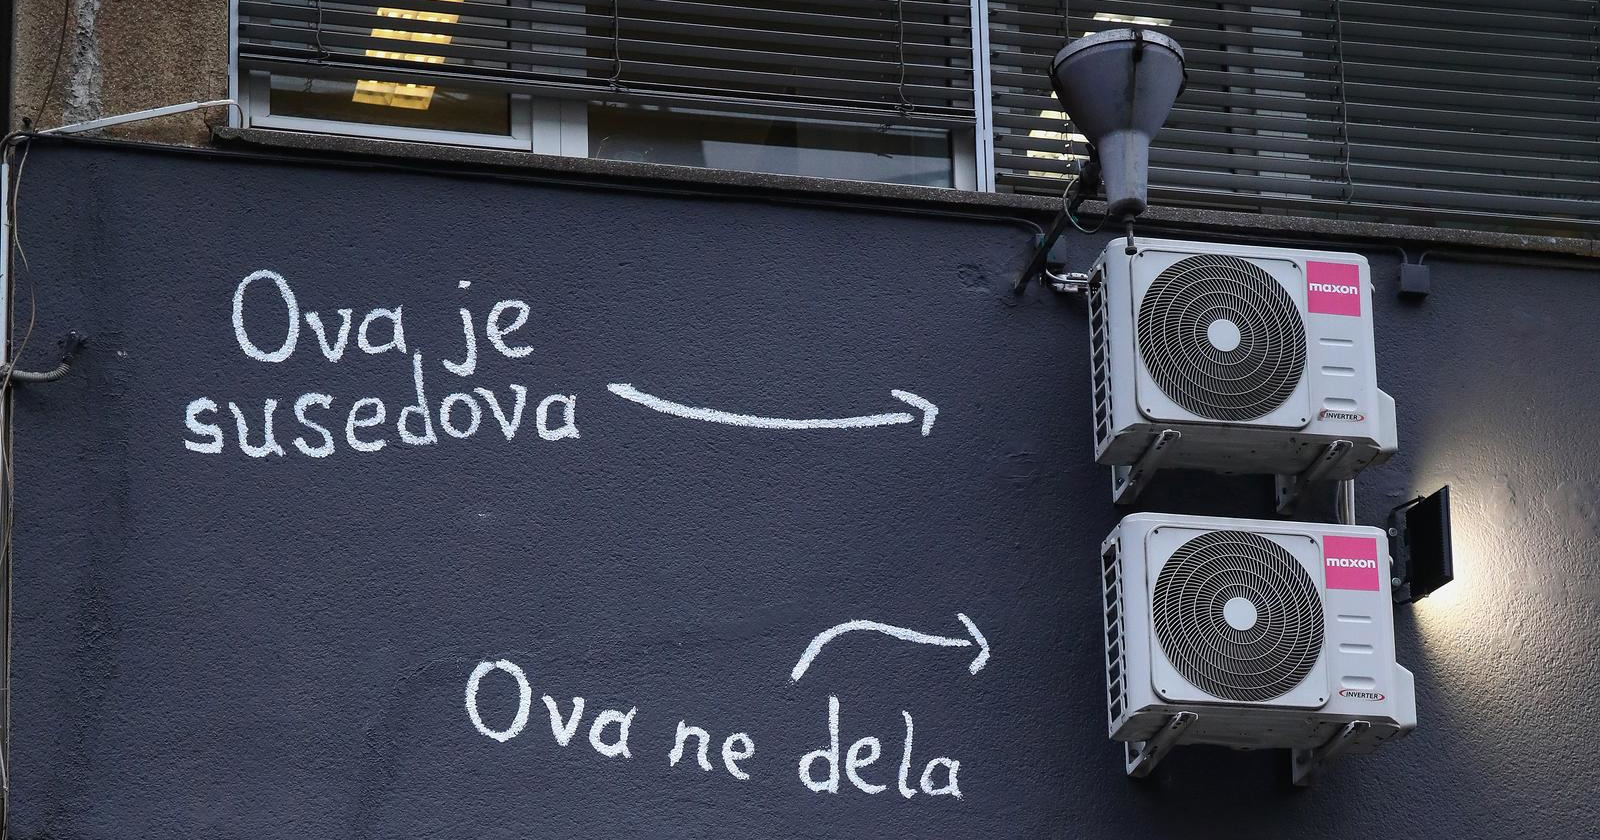 Ova je
susedova
maxon
INVERTER
maxon
INVERTER
Ova ne dela